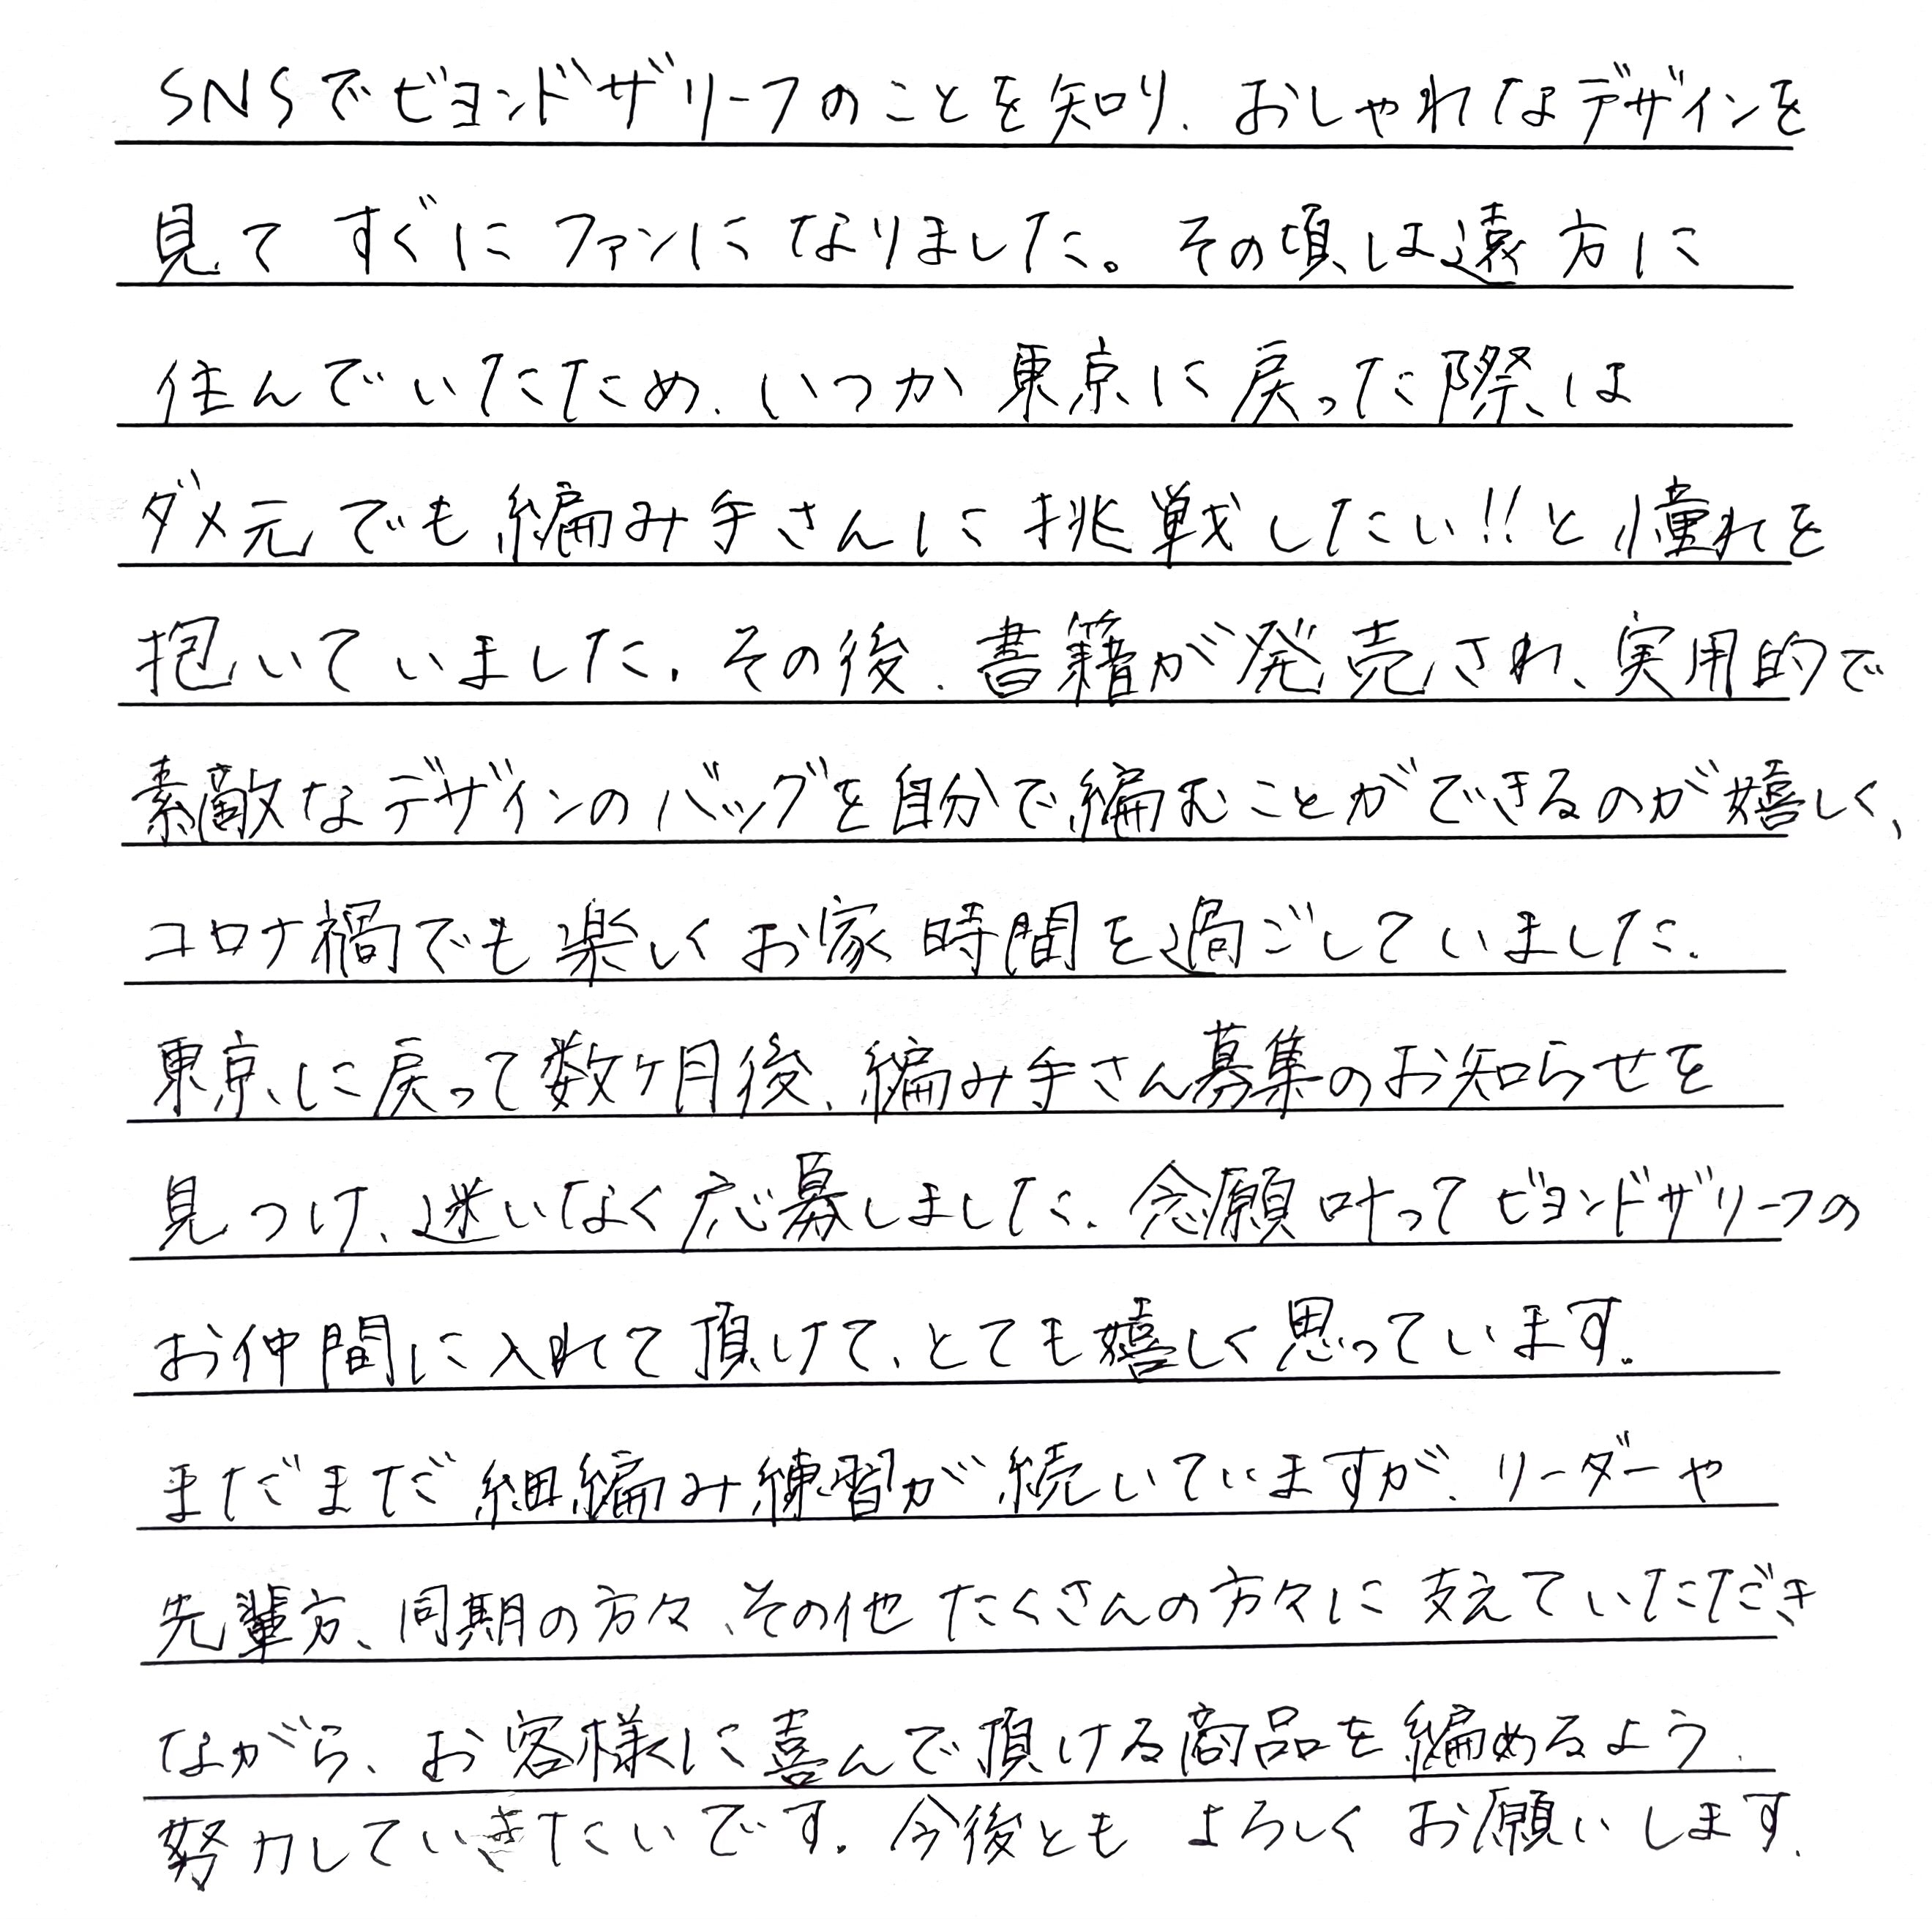 SNSでビヨンドザリーフのことを知り、おしゃれなデザインを
見てすぐにファンになりました。その頃は遠方に
住んでいたため、いつか東京に戻った際は
ダメ元でも編み手さんに挑戦したい!!と憧れを
抱いていました。その後、書籍が発売され、実用的で
素敵なデザインのバッグを自分で編むことができるのが嬉しく、
コロナ禍でも楽しくお家時間を過ごしていました。
東京に戻って数ヶ月後、編み手さん募集のお知らせを
見つけ、迷いなく応募しました。念願叶ってビヨンドザリーフの
お仲間に入れて頂けて、とても嬉しく思っています。
まだまだ細編み練習が続いていますが、リーダーや
先輩方、同期の方々、その他たくさんの方々に支えていただき
ながら、お客様に喜んで頂ける商品を編めるよう、
努力していきたいです。今後ともよろしくお願いします。